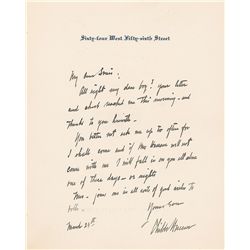 Sixty-four West Fifty-sixth Street
My dear Louis:
All right my dear boy! your letter
and check reached me this morning - and
thanks to you herewith.
You better not ask me up to often for
I shall come and if Mrs will not
come with me I will fall in on you all alone
one of these days - or nights
Mrs joins me in all sorts of good wishes to
both.
Yours Ever
March 25th